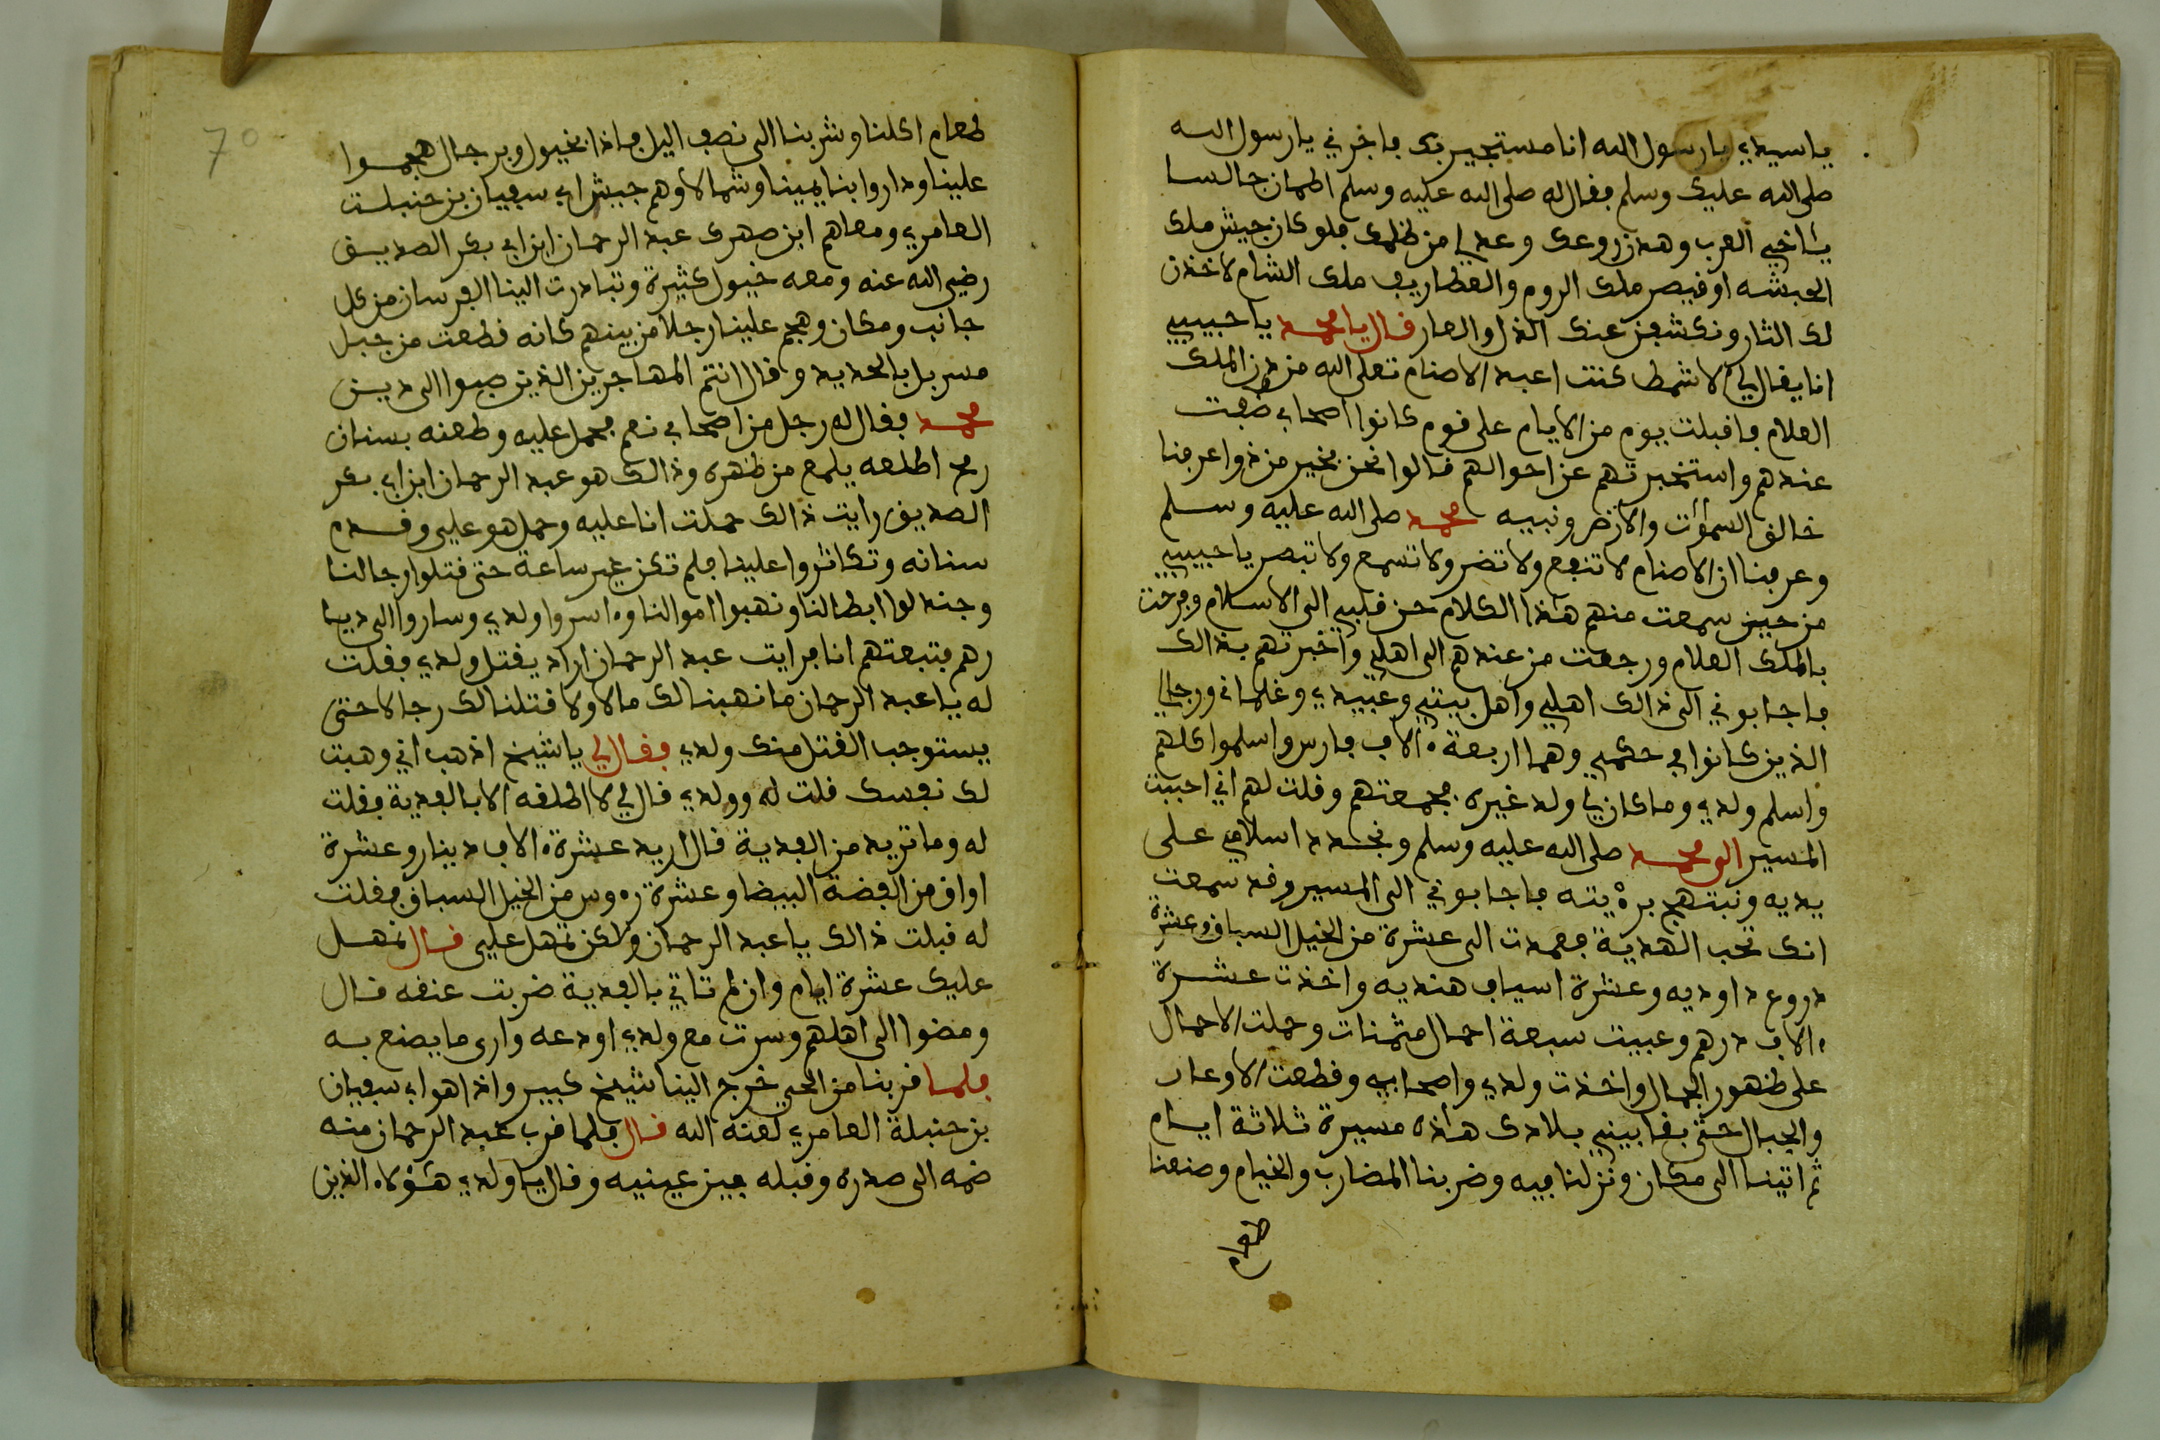 ياسيدي يا رسول الله انا مستجير بك فاخرني يا رسول الله
صلى الله عليك وسلم فقال له صلى الله عليه وسلم اطمان جالسا
ياخي العرب وهدن روعك وعديا من ظلمك فلو كان جيش ملك
الحبشه او قيصر ملك الروم والغطاريف ملك الشام لاخذن
لك الثار ونكشفن عنك الذل والعار قال يا محمد يا حبيبي
انا يقال لي الاشمط كنت اعبد الاصنام من دون الملك
العلام فاقبلت يوم من الايام على قوم كانوا اصحابي ضفت
عندهم واستخبرتهم عن احوالهم قالوا نحن بخير مذ واعرفنا
خالق السموت والارض ونبيه محمد صلى الله عليه وسلم
وعرفنا ان الاصنام لا تنفع ولا تضر ولا تسمع ولا تبصر يا حبيبي
من حين سمعت منهم هذا الكلام حن قلبي الى الاسلام وفرحت
بالملك العلام ورجعت من عندهم الى اهلي واخبرتهم بذالك
فاجابوني الى ذالك اهلي واهل بيتي وعبيدي وغلماني ورجالي
الذين كانوا في حكمي وهما اربعة ءالاف فارس واسلموا كلهم
واسلم ولدي وما كان لي ولد غيره فجمعتهم وقلت لهم اني احببت
المسير الى محمد صلى الله عليه وسلم ونجدد اسلامي على
يديه ونبتهج برءيته فاجابوني الى المسير وقد سمعت
انك تحب الهدية فعمدت الى عشرة من الخيل السباق وعشرة
دروع داوديه وعشرة اسياف هنديه واخذت عشرة
ءالاف درهم وعبيت سبعة احمال مثمنات وحملت الاحمال
على ظهور الجمال واخذت ولدي واصحابي وقطعت الاوعار
والجبال حتى بقا بيني بلادك هاذه مسيرة ثلاثة ايام
ثم اتينا الى مكان ونزلنا فيه وضربنا المضارب والخيام وصنعنا
طعام
70
طعام اكلنا وشربنا الى نصف اليل فاذا بخيول وبرجال هجموا
علينا وداروا بنا يمينا وشمالا وهم جيش ابي سفيان بن حنبلت
العامري ومعاهم ابن صهرك عبد الرحمان ابن ابي بكر الصديق
رضي الله عنه ومعه خيول كثيرة وتبادرت الينا الفرسان من كل
جانب ومكان وهجم علينا رجلا من بينهم كانه قطعت من جبل
مسربل بالحديد وقال انتم المهاجرين الذين صبوا الى دين
محمد فقال له رجل من اصحابي نعم فحمل عليه وطعنه بسنان
رمح اطلعه يلمع من ظهره وذالك هو عبد الرحمان ابن ابي بكر
الصديق رايت ذالك حملت انا عليه وحمل هو علي وقدم
سنانه وتكاثروا علينا فلم تكن غير ساعة حتى قتلوا رجالنا
وجندلوا ابطالنا ونهبوا اموالنا وءاسروا ولدي وساروا الى ديا
رهم فتبعتهم انا فرايت عبد الرحمان اراد يقتل ولدي فقلت
له يا عبد الرحمان ما نهبنا لك مالا ولا قتلنا لك رجالا حتى
يستوجب القتل منك ولدي فقال لي يا شيخ اذهب اني وهبت
لك نفسك قلت له وولدي قال لي لا اطلقه الا بالفدية فقلت
له وما تريد من الفدية قال اريد عشرة ءالاف دينار وعشرة
اواق من الفضة البيضا وعشرة رءوس من الخيل السباق فقلت
له قبلت ذالك يا عبد الرحمان ولكن تمهل علي قال نمهل
عليك عشرة ايام وان لم تاتي بالفدية ضربت عنقه قال
ومضوا الى اهلهم وسرت مع ولدي اودعه وارى ما يصنع به
فلما قربنا من الحي خرج الينا شيخ كبير واذا هو ابي سفيان
بن حنبلة العامري لعنه الله قال فلما قرب عبد الرحمان منه
ضمه الى صدره وقبله بين عينيه وقال يا ولدي هؤلاء الذين